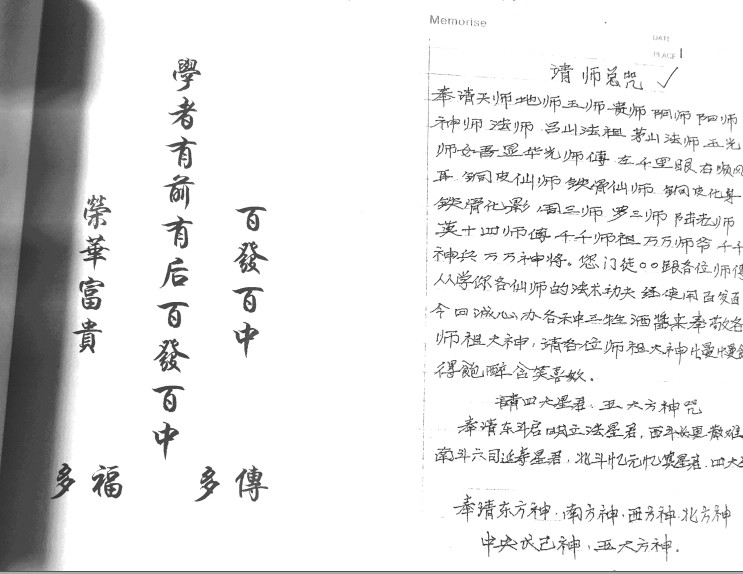 百發百中
學者有前有后百發百中
榮華富貴
多福
多傳
Memorise
DATE
PLACE
請师总咒 ✓
奉请天师地师五师 师阴师阳师
神师法师 吕山法祖 茅山法师 五光
师 吾显华光师傅 左千里眼右顺风
耳 铜皮仙师 铁骨仙师 铜皮化身
铁骨化影 周三师 罗三师 陆 师
英十四师傅 千千师祖 万万师爷 千千
神兵 万万神将。您门徒○○跟各位师傅
从学你各仙师的法术功夫 经使用百发百
今回诚心办各种三牲酒醬来奉敬各
师祖大神，请各位师祖大神慢慢
得飽醉含笑喜 。
請四大星君、五大方神咒
奉请东斗 立法星君，西斗 星
南斗六司延寿星君，北斗 星君，四大
奉请东方神、南方神、西方神、北方神
中央戊己神、五大方神。